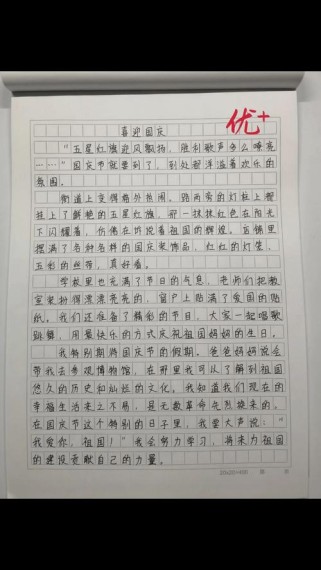 优+
喜迎国庆
“五星红旗迎风飘扬，胜利歌声多么嘹亮
……”国庆节就要到了，到处都洋溢着欢乐的
氛围。
街道上变得格外热闹。路两旁的灯柱上都
挂上了鲜艳的五星红旗，那一抹抹红色在阳光
下闪耀着，仿佛在诉说着祖国的辉煌。店铺里
摆满了各种各样的国庆装饰品，红红的灯笼，
五彩的丝带，真好看。
学校里也充满了节日的气息，老师们把教
室装扮得漂漂亮亮的，窗户上贴满了爱国的贴
纸。我们还准备了精彩的节目，大家一起唱歌
跳舞，用最快乐的方式庆祝祖国妈妈的生日。
我特别期待国庆节的假期。爸爸妈妈说会
带我去参观博物馆，在那里我可以了解到祖国
悠久的历史和灿烂的文化。我知道我们现在的
幸福生活来之不易，是无数革命先烈换来的。
在国庆节这个特别的日子里，我要大声说：“
我爱你，祖国！”我会努力学习，将来为祖国
的建设贡献自己的力量。
20×20=400 第 页